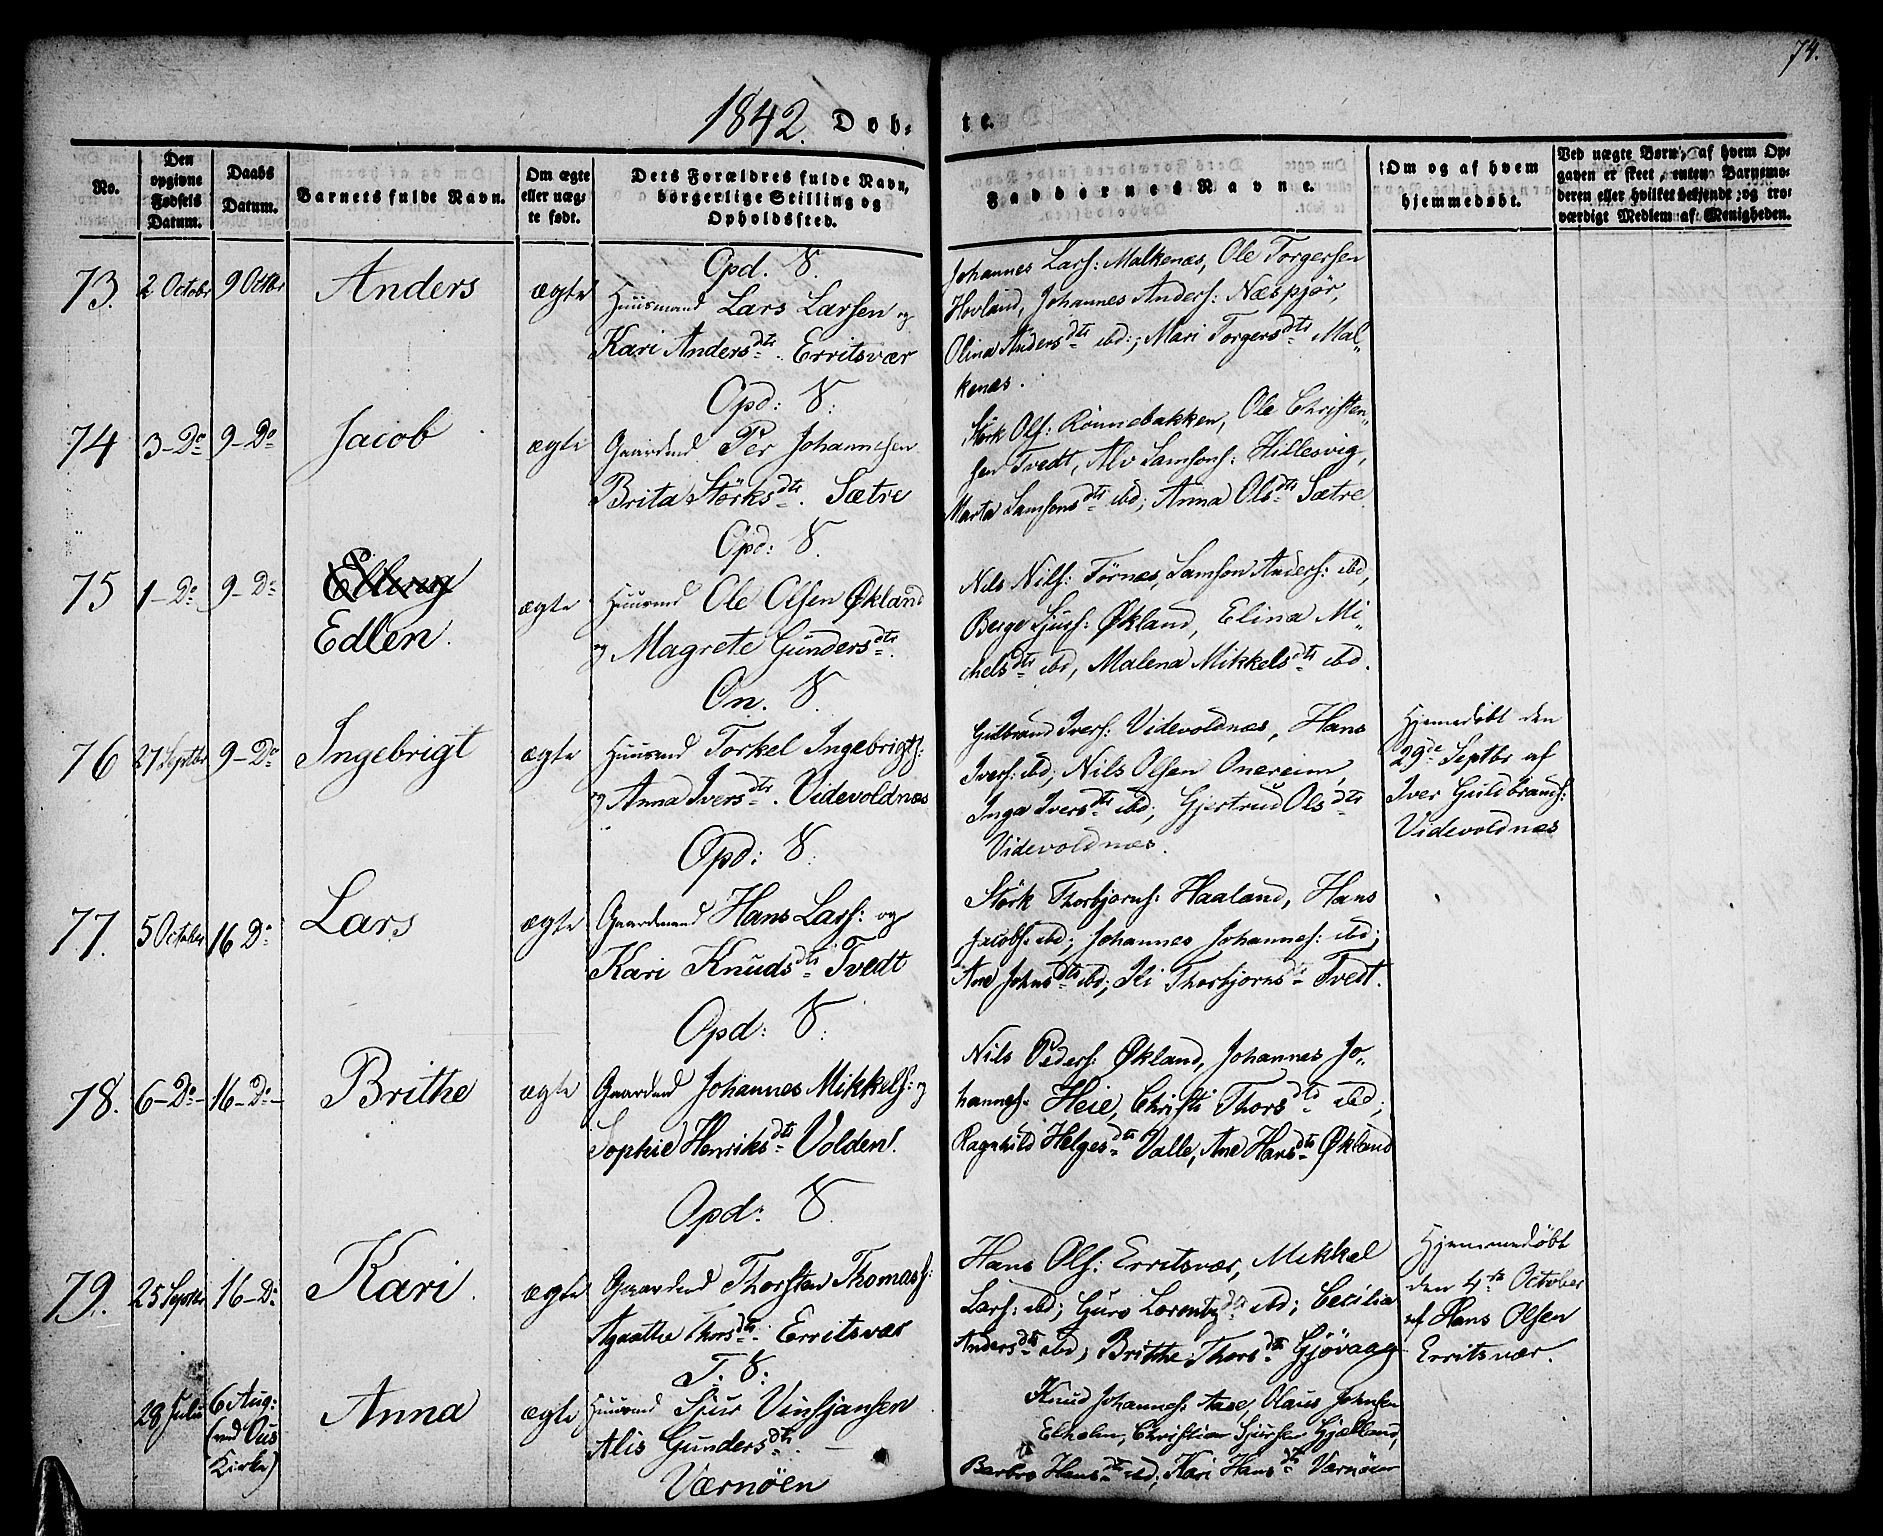 74.
1842. Døb-
te.
No.
Den
opgivne
Fødsels
Datum.
Daabs
Datum.
Barnets fulde Navn.
Om ægte
eller uæg-
te født.
Dets Forældres fulde Navn,
borgerlige Stilling og
Opholdssted.
Faddernes Navne.
Om og af hvem
hjemmedøbt.
Ved uægte Børn, af hvem Op-
gaven er skeet, enten Barnemo-
deren eller hvilket bekjendt og tro-
værdigt Medlem af Menigheden.
73.
2 Octobr
9 Octbr
Anders
ægte
Opd. 8.
Huusmand Lars Larsen og
Kari Anders dtr. Erritsvær
Johannes Lars: Malkenæs, Ole Torgersen
Hovland, Johannes Anders: Næspjør,
Olina Anders dtr ibd:; Mari Torgers dtr Mal-
kenæs.
74
3-Do
9-Do
Jacob
ægte
Opd: 8:
Gaardmd Per Johannesen
Brita Störks dtr. Sætre
Störk Ols: Rönnebakken, Ole Christen-
sen Tvedt, Alv Samsons: Hillesvig,
Marta Samsons dtr ibd; Anna Ols dtr Sætre
75
1-Do
9-Do
Elling
Edlen.
ægte
Opd: 8.
Huusmd Ole Olsen Økland
og Magrete Gunders dtr.
Nils Nils: Törnes, Samson Anders: ibd,
Berge Sjurs: Økland, Elina Mi-
chels dtr ibd, Malena Mikkels dtr ibd.
76
27 Septbr
9-Do
Ingebrigt
ægte
On. 8.
Huusmd Torkel Ingebrigts:
og Anna Ivers dtr. Videvoldnæs
Gulbrand Ivers: Videvoldnæs, Hans
Ivers: ibd; Nils Olsen Onereim,
Inga Ivers dtr ibd; Gjertrud Ols dtr
Videvoldnæs.
Hjemmedøbt den
29de Septbr af
Iver Guldbrands:
Videvoldnæs
77.
5 October
16 Do
Lars
ægte
Opd: 8:
Gaardmand Hans Lars: og
Kari Knuds dtr Tvedt
Störk Thorbjorns: Haaland, Hans
Jacobs: ibd; Johannes Johannes: ibd;
Ane Johns dtr ibd; Thorbjorns dtr Tvedt.
78.
6-Do-
16-Do-
Brithe
ægte
Opd: 8:
Gaardmd Johannes Mikkels: og
Sophie Henriks dtr Volden.
Nils Peders: Økland, Johannes Jo-
hannes: Heie, Christi Thors dtr ibd;
Ragnhild Helges dtr Valle, Ane Hans dtr Økland
79.
25 Septbr
16-Do
Kari.
ægte
Opd: 8.
Gaardmd Thorsten Thomas:
Agathe Thors dtr Erritsvær
Hans Ols: Erritsvær, Mikkel
Lars: ibd; Guro Lorents dtr ibd; Cecilia
Anders dtr ibd; Brithe Thors dtr Gjövaag
Hjemmedøbt
den 4de October
af Hans Olsen
Erritsvær.
28 Julii
6 Aug:
(ved Ous
Kirke)
Anna
ægte
T. 8:
Huusmd Sjur Vinsjansen
Alis Gunders dtr. –
Værnøen
Knud Johannes: Aase, Olaus Johnsen
Elholm, Christian Sjursen Gjelland,
Barbro Hans dtr ibd; Kari Hans dtr Værnöen